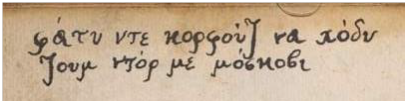 φάτυ ντε κορφούζ να χόδυ
ζουμ ντόρ με μόσκοβι